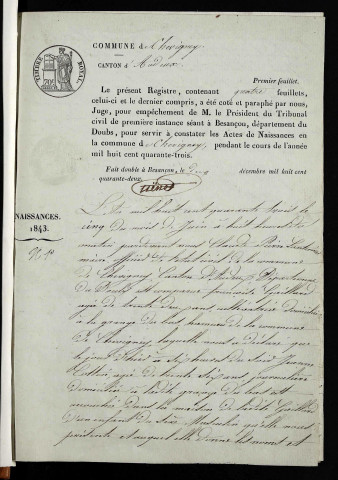 TIMBRE ROYAL
COMMUNE d Chevigney
CANTON d'Audeux
Premier feuillet.
Le présent Registre, contenant quatre feuillets,
celui-ci et le dernier compris, a été coté et paraphé par nous,
Juge, pour empêchement de M. le Président du Tribunal
civil de première instance séant à Besançon, département du
Doubs, pour servir à constater les Actes de Naissances en
la commune de Chevigney, pendant le cours de l'année
mil huit cent quarante-trois.
Fait double à Besançon, le décembre mil huit cent
quarante-deux.
NAISSANCES.
1843.
L'an mil huit cent quarante trois le
cinq du mois de Juin à huit heures du
matin pardevant nous Claude Pierre
maire officier de l'état civil de la commune
de Chevigney, Canton d'Audeux, Département
du Doubs est comparue
agée de trente ans domiciliée
à la grange du bas hameau de la commune
de Chevigney, laquelle nous a déclaré que
le jour d'hier à sept heures du soir Jeanne
agée de trente ans journalière
domiciliée à ladite grange du bas est
accouchée dans la maison de ladite
d'un enfant du sexe Masculin qu'elle nous
présente et auquel elle donne les noms et